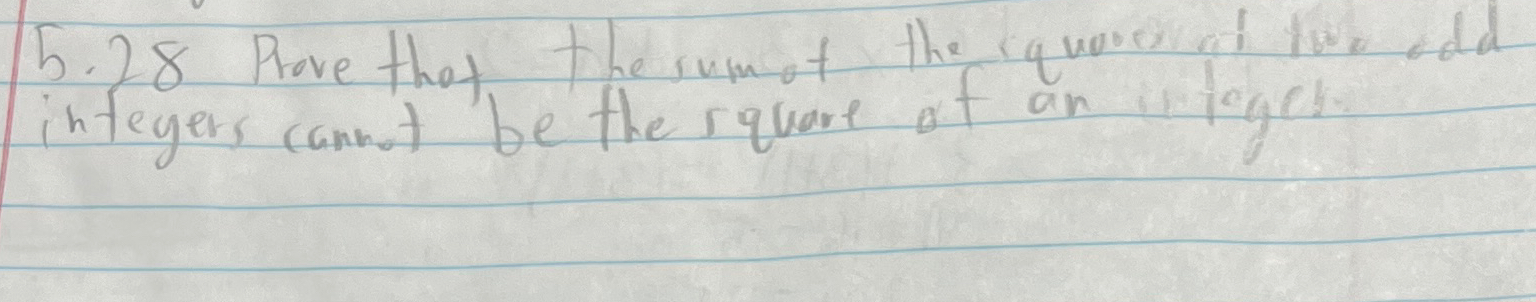 5.28 Prove that the sum of the squares of two odd
integers cannot be the square of an integer.